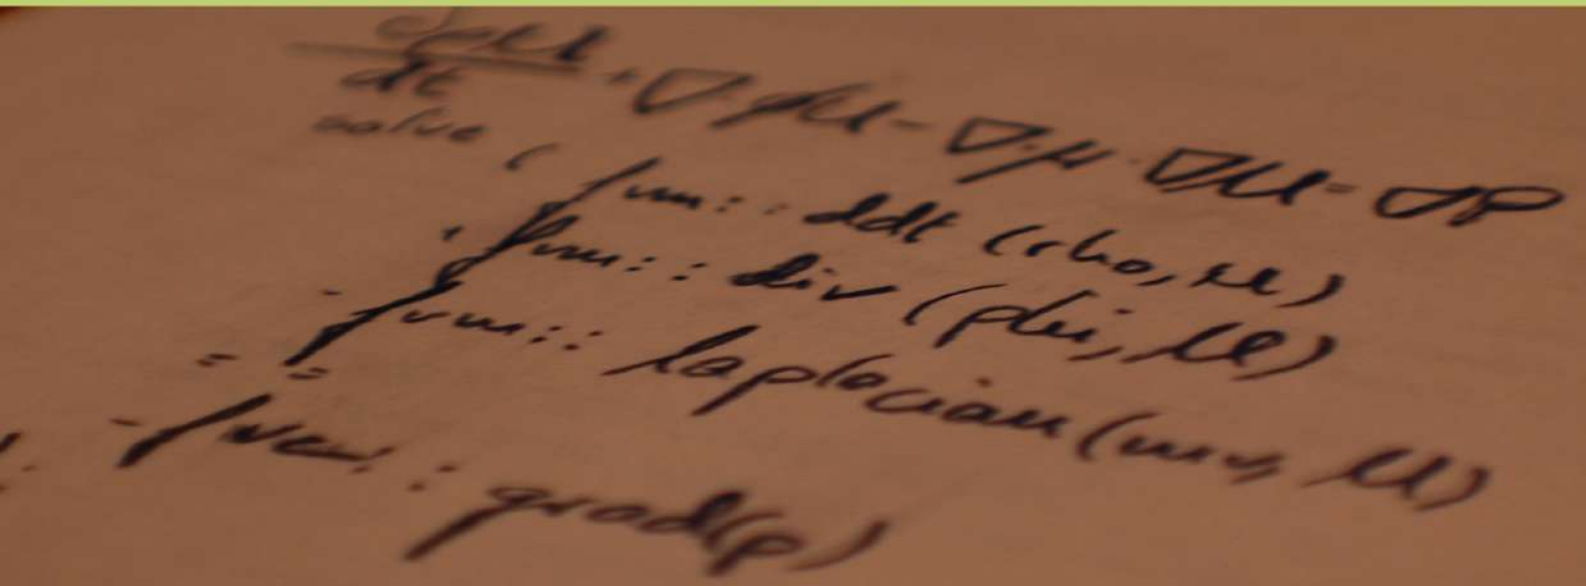 dρU
dt
+ ∇·φU - ∇·μ·∇U = -∇p
solve (
fvm::ddt (rho, U)
+ fvm::div (phi, U)
- fvm::laplacian (mu, U)
==
- fvc::grad(p)